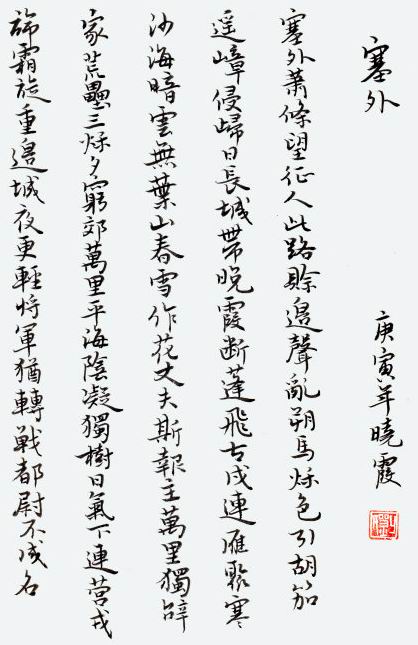 塞外
庚寅年曉霞
塞外蕭條望征人此路賒邉聲亂朔馬秋色引胡笳
遥嶂侵歸日長城帶晚霞断蓬飛古戍連雁聚寒
沙海暗雲無葉山春雪作花丈夫斯報主萬里獨辭
家荒壘三秋夕窮郊萬里平海陰凝獨樹日氣下連營戎
旆霜旋重邉城夜更輕将軍猶轉戦都尉不成名